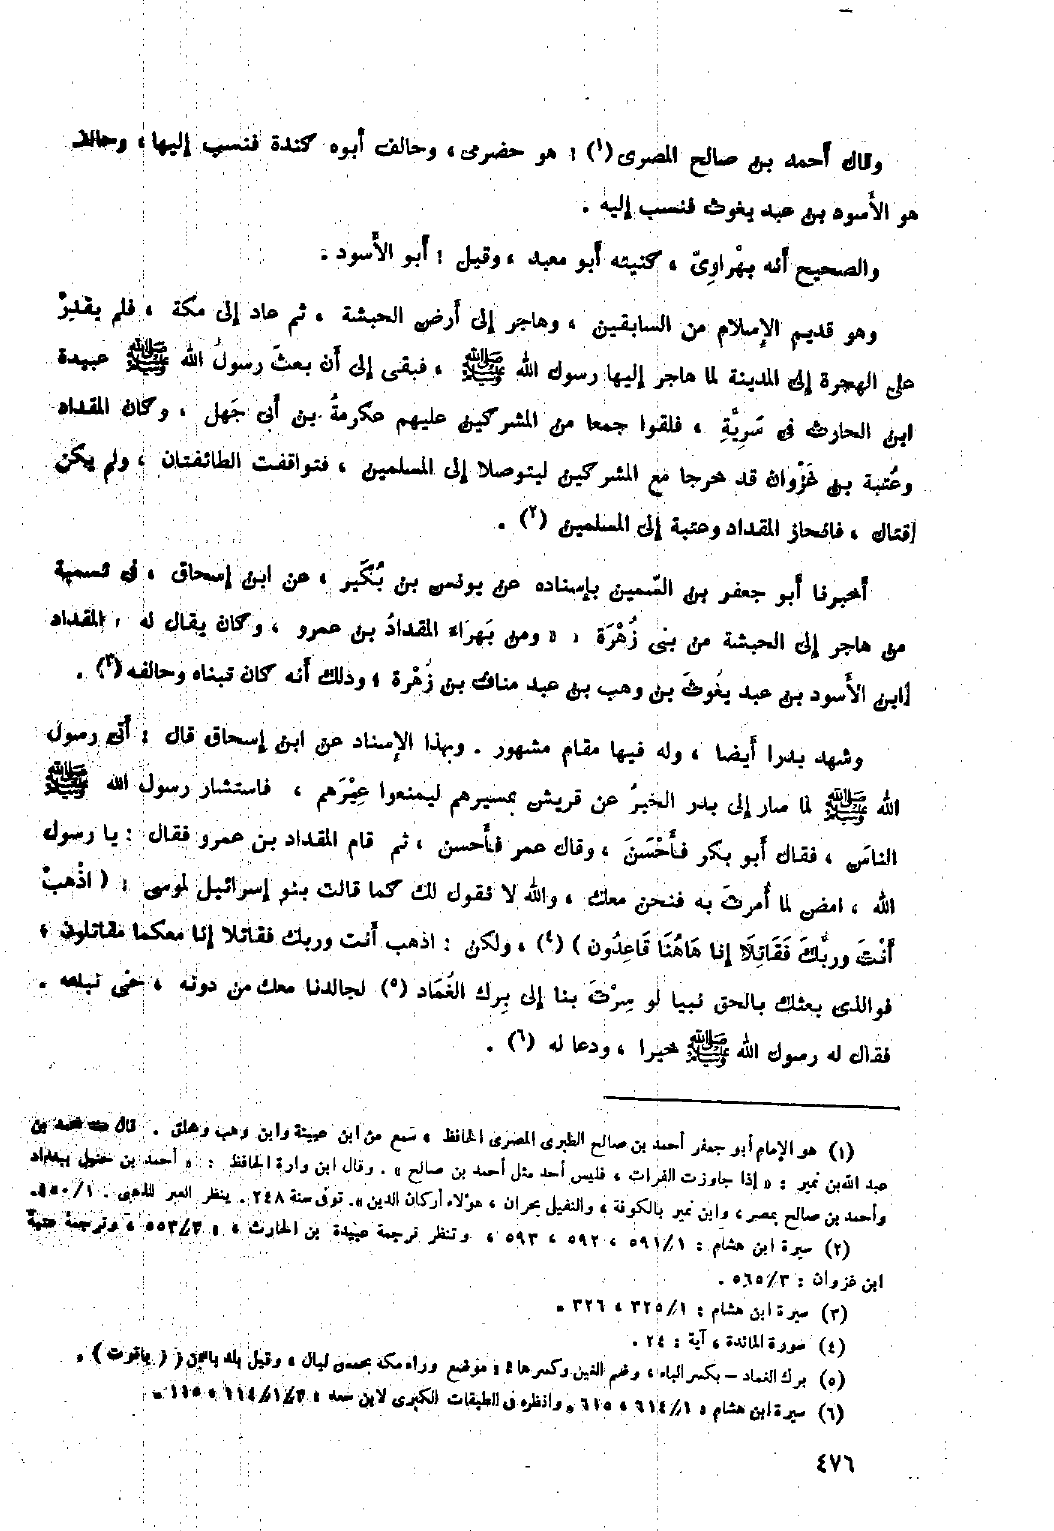 وقال أحمد بن صالح المصرى (١) : هو حضرمى ، وحالف أبوه كندة فنسب إليها ، وحالف
هو الأسود بن عبد يغوث فنسب إليه .
والصحيح أنه بهْراوِىّ ، كنيته أبو معبد ، وقيل : أبو الأسود .
وهو قديم الإسلام من السابقين ، وهاجر إلى أرض الحبشة ، ثم عاد إلى مكة ، فلم يقدِرْ
على الهجرة إلى المدينة لما هاجر إليها رسول الله ﷺ ، فبقى إلى أن بعثَ رسولُ الله ﷺ عبيدة
ابن الحارث فى سَرِيَّةٍ ، فلقوا جمعا من المشركين عليهم عكرمةُ بن أبى جَهل ، وكان المقداد
وعُتبة بن غَزْوان قد خرجا مع المشركين ليتوصلا إلى المسلمين ، فتواقفت الطائفتان ، ولم يكن
قتال ، فانحاز المقداد وعتبة إلى المسلمين (٢) .
أخبرنا أبو جعفر بن السّمين بإسناده عن يونس بن بُكَير ، عن ابن إسحاق ، فى تسمية
من هاجر إلى الحبشة من بنى زُهْرَة : « ومن بَهراء المقدادُ بن عمرو ، وكان يقال له : المقداد
ابن الأسود بن عبد يغُوثَ بن وهب بن عبد مناف بن زُهْرة ؛ وذلك أنه كان تبناه وحالفه (٣) .
وشهد بدرا أيضا ، وله فيها مقام مشهور . وبهذا الإسناد عن ابن إسحاق قال : أتى رسول
الله ﷺ لما صار إلى بدر الخبرُ عن قريش بمسيرهم ليمنعوا عِيْرَهم ، فاستشار رسول الله ﷺ
الناسَ ، فقال أبو بكر فأَحْسَنَ ، وقال عمر فأحسن ، ثم قام المقداد بن عمرو فقال : يا رسول
الله ، امض لما أُمرتَ به فنحن معك ، والله لا نقول لك كما قالت بنو إسرائيل لموسى : ( اذْهبْ
أَنْتَ وربُّكَ فَقَاتِلَا إنا هَاهُنَا قَاعِدُون ) (٤) ، ولكن : اذهب أنت وربك فقاتلا إنا معكما مقاتلون ،
فوالذى بعثك بالحق نبيا لو سِرْتَ بنا إلى بِرك الغُمَاد (٥) لجالدنا معك من دونه ، حتى نبلغه .
فقال له رسول الله ﷺ خيرا ، ودعا له (٦) .
(١) هو الإمام أبو جعفر أحمد بن صالح الطبرى المصرى الحافظ ، سمع من ابن عيينة وابن وهب وخلق . قال محمد بن
عبد الله بن نمير : « إذا جاوزت الفرات ، فليس أحد مثل أحمد بن صالح » . وقال ابن وارة الحافظ : « أحمد بن حنبل ببغداد
وأحمد بن صالح بمصر ، وابن نمير بالكوفة ، والنفيل بحران ، هؤلاء أركان الدين ». توفى سنة ٢٤٨ . ينظر العبر للذهبى : ١/٤٥٠.
(٢) سيرة ابن هشام : ٥٩١/١ ، ٥٩٢ ، ٥٩٣ ، وتنظر ترجمة عبيدة بن الحارث ، : ٥٥٣/٣ ، وترجمة عتبة
ابن غزوان : ٥٦٥/٣ .
(٣) سيرة ابن هشام : ٣٢٥/١ ، ٣٢٦ .
(٤) سورة المائدة ، آية : ٢٤ .
(٥) برك الغماد – بكسر الباء ، وضم الغين وكسرها : موضع وراء مكة بخمس ليال ، وقيل بلد باليمن ( ياقوت ) .
(٦) سيرة ابن هشام : ٦١٤/١ ، ٦١٥ . وانظره فى الطبقات الكبرى لابن سعد : ١١٤/١/٣ ، ١١٥ .
٤٧٦